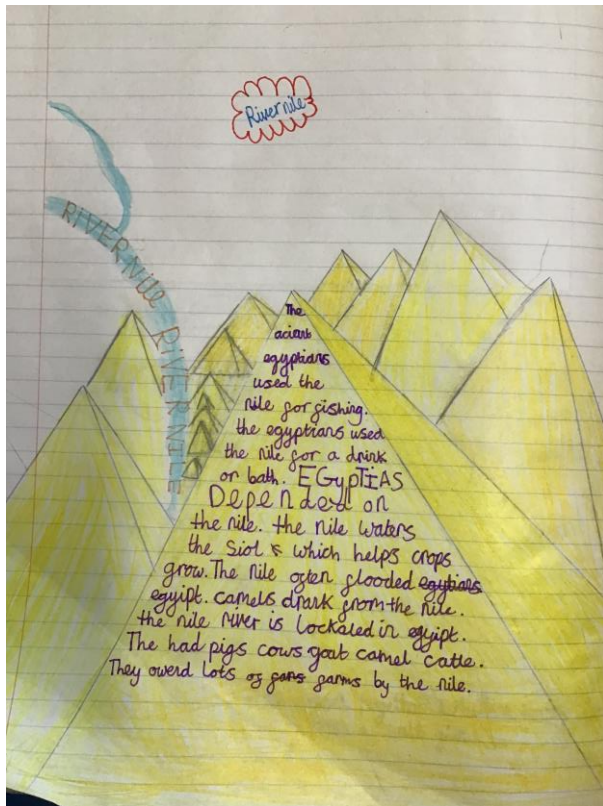 River nile
RIVER NILE RIVER NILE
The
acient
egyptians
used the
nile for fishing.
the egyptians used
the nile for a drink
or bath. EGypTIAS
Depended on
the nile. the nile waters
the siol & which helps crops
grow. The nile often flooded egytians
egyipt. camels drank from the nile.
the nile river is lockaled in egyipt.
The had pigs cows goat camel catle.
They owerd lots of fars farms by the nile.